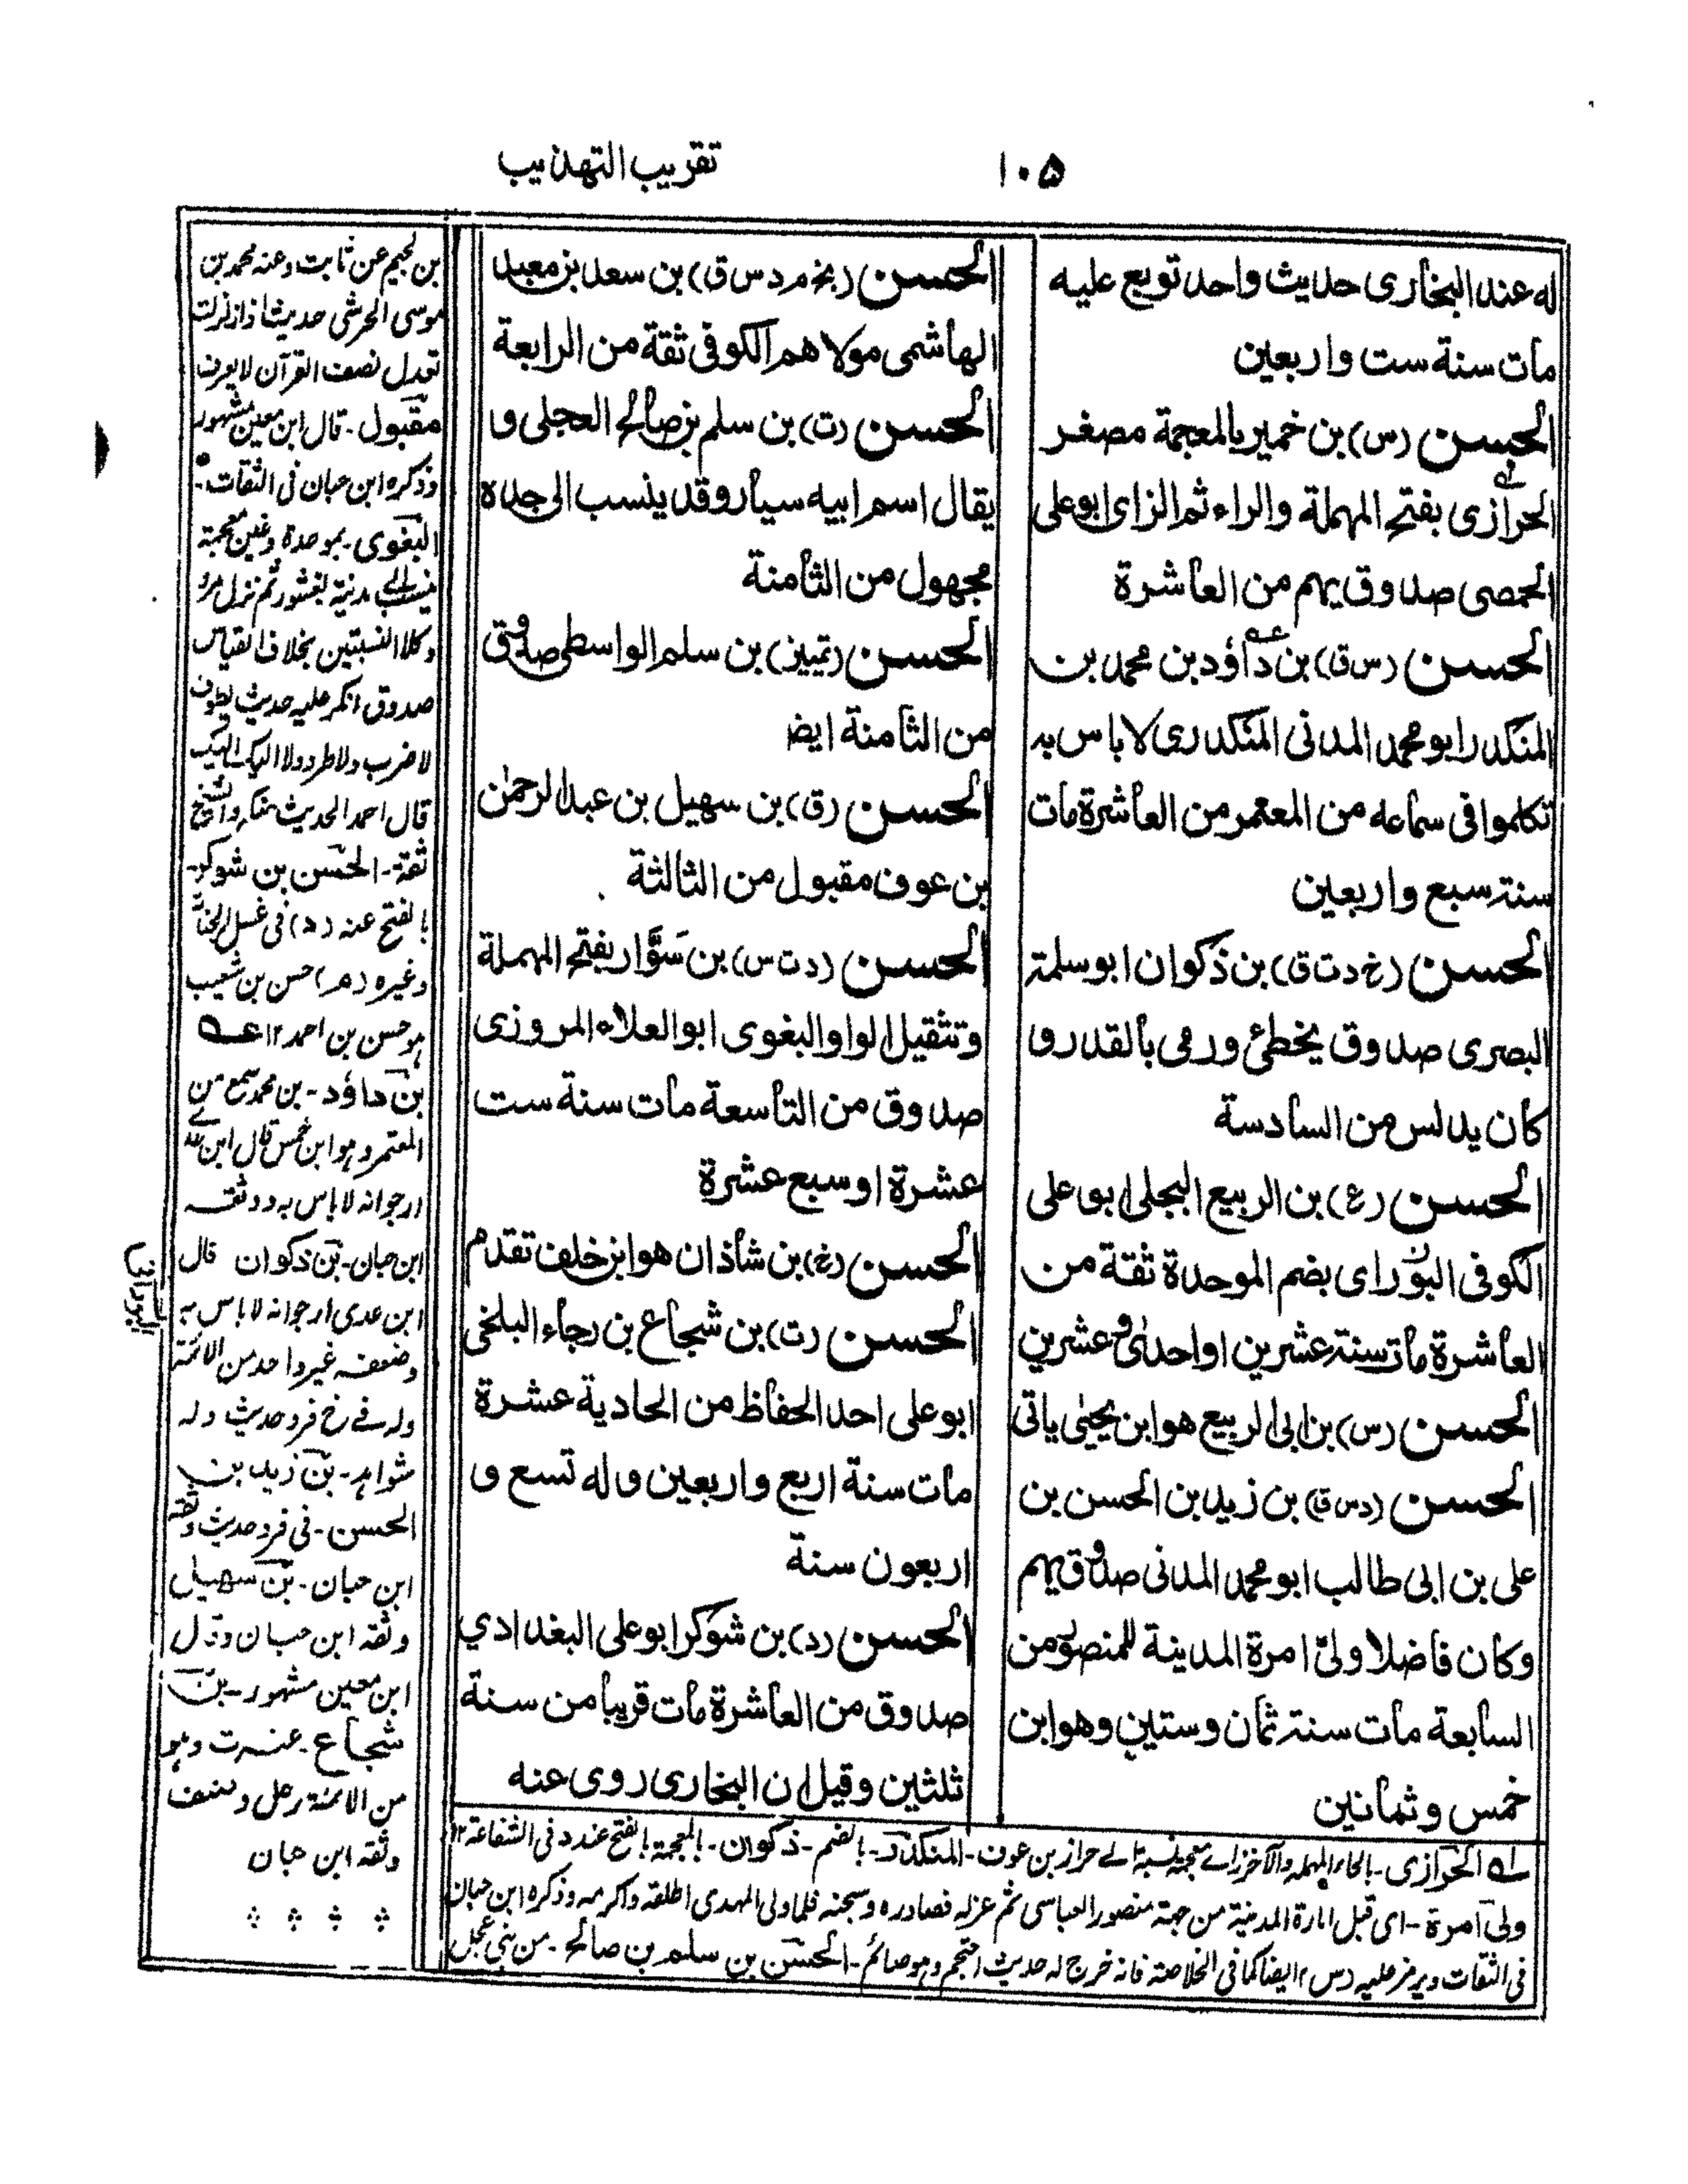 ۱۰۵
تقريب التهذيب
له عند البخارى حديث واحد توبع عليه
مات سنة ست واربعين
الحسن (س) بن خمير بالمعجمة مصغر
الحرازى بفتح المهملة والراء ثم الزاى ابو على
الحمصى صدوق يهم من العاشرة
الحسن (س ق) بن داؤد بن محمد بن
المنكدر ابو محمد المدنى المنكدرى لا باس به
تكلموا فى سماعه من المعتمر من العاشرة مات
سنة سبع واربعين
الحسن (خ د ت ق) بن ذكوان ابو سلمة
البصرى صدوق يخطئ ورمى بالقدر و
كان يدلس من السادسة
الحسن (ع) بن الربيع البجلى ابو على
الكوفى البورانى بضم الموحدة ثقة من
العاشرة مات سنة عشرين او احدى وعشرين
الحسن (س) بن ابى الربيع هو ابن يحيى ياتى
الحسن (د س ق) بن زيد بن الحسن بن
على بن ابى طالب ابو محمد المدنى صدوق يهم
وكان فاضلا ولى امرة المدينة للمنصور من
السابعة مات سنة ثمان وستين وهو ابن
خمس وثمانين
الحسن (بخ م د س ق) بن سعد بن معبد
الهاشمى مولاهم الكوفى ثقة من الرابعة
الحسن (ت) بن سلم بن صالح العجلى و
يقال اسم ابيه سيار وقد ينسب الى جده
مجهول من الثامنة
الحسن (تمييز) بن سلم الواسطى صدوق
من الثامنة ايض
الحسن (ق) بن سهيل بن عبد الرحمٰن
بن عوف مقبول من الثالثة
الحسن (د ت س) بن سَوَّار بفتح المهملة
وتثقيل الواو البغوى ابو العلاء المروزى
صدوق من التاسعة مات سنة ست
عشرة او سبع عشرة
الحسن (خ) بن شاذان هو ابن خلف تقدم
الحسن (ت) بن شجاع بن رجاء البلخى
ابو على احد الحفاظ من الحادية عشرة
مات سنة اربع واربعين وله تسع و
اربعون سنة
الحسن (د) بن شوكر ابو على البغدادي
صدوق من العاشرة مات قريبا من سنة
ثلثين وقيل ان البخارى روى عنه
بن لجيم عن ثابت وعنه محمد بن
موسى الحرشى حديث اذا زلزلت
تعدل نصف القرآن لا يعرف
مقبول - قال ابن معين مشهور
وذكره ابن حبان فى الثقات -
البغوى - بموحدة وغين معجمة
ينسب الى مدينة بغشور ثم نزل مرو
وكلا النسبتين بخلاف القياس
صدوق انكر عليه حديث يطوف
لا ضرب ولا طرد ولا اليك اليك
قال احمد الحديث منكر والشيخ
ثقة - الحسن بن شوكر -
بالفتح عنه (د) فى غسل الجنابة
وغيره (هـ) حسن بن شعيب
ہو حسن بن احمد ۱۲ عـه
بن داؤد - بن محمد سمع من
المعتمر وہو ابن خمس قال ابن عدے
ارجو انه لا باس به ووثقه
ابن حبان - بن ذكوان قال
ابن عدى ارجو انه لا باس به
وضعفه غير واحد من الائمة
وله فے خ فرد حديث وله
شواہد - بن زيد بن
الحسن - فى فرد حديث وثقه
ابن حبان - بن سهيل
وثقه ابن حبان وقال
ابن معين مشهور - بن
شجاع - عنه ت وہو
من الائمة رحل وصنف
وثقه ابن حبان
البورانى
لـه الحرازى - بالحاء المهملة والآخر زاے معجمة نسبة الے حراز بن عوف - المنكدر - بالضم - ذكوان - بالمعجمة بالفتح عند د فى الشفاعة ۱۲
ولى امرة - اى قبل امارة المدينة من جهة منصور العباسى ثم عزله فصادره وسجنه فلما ولى المهدى اطلقه واكرمه وذكره ابن حبان
فى الثقات ويرمز عليه د س ۱۲ ايضا كما فى الخلاصة فانه خرج له حديث احتجم وہو صائم - الحسن بن سلم بن صالح - من بنى عجل